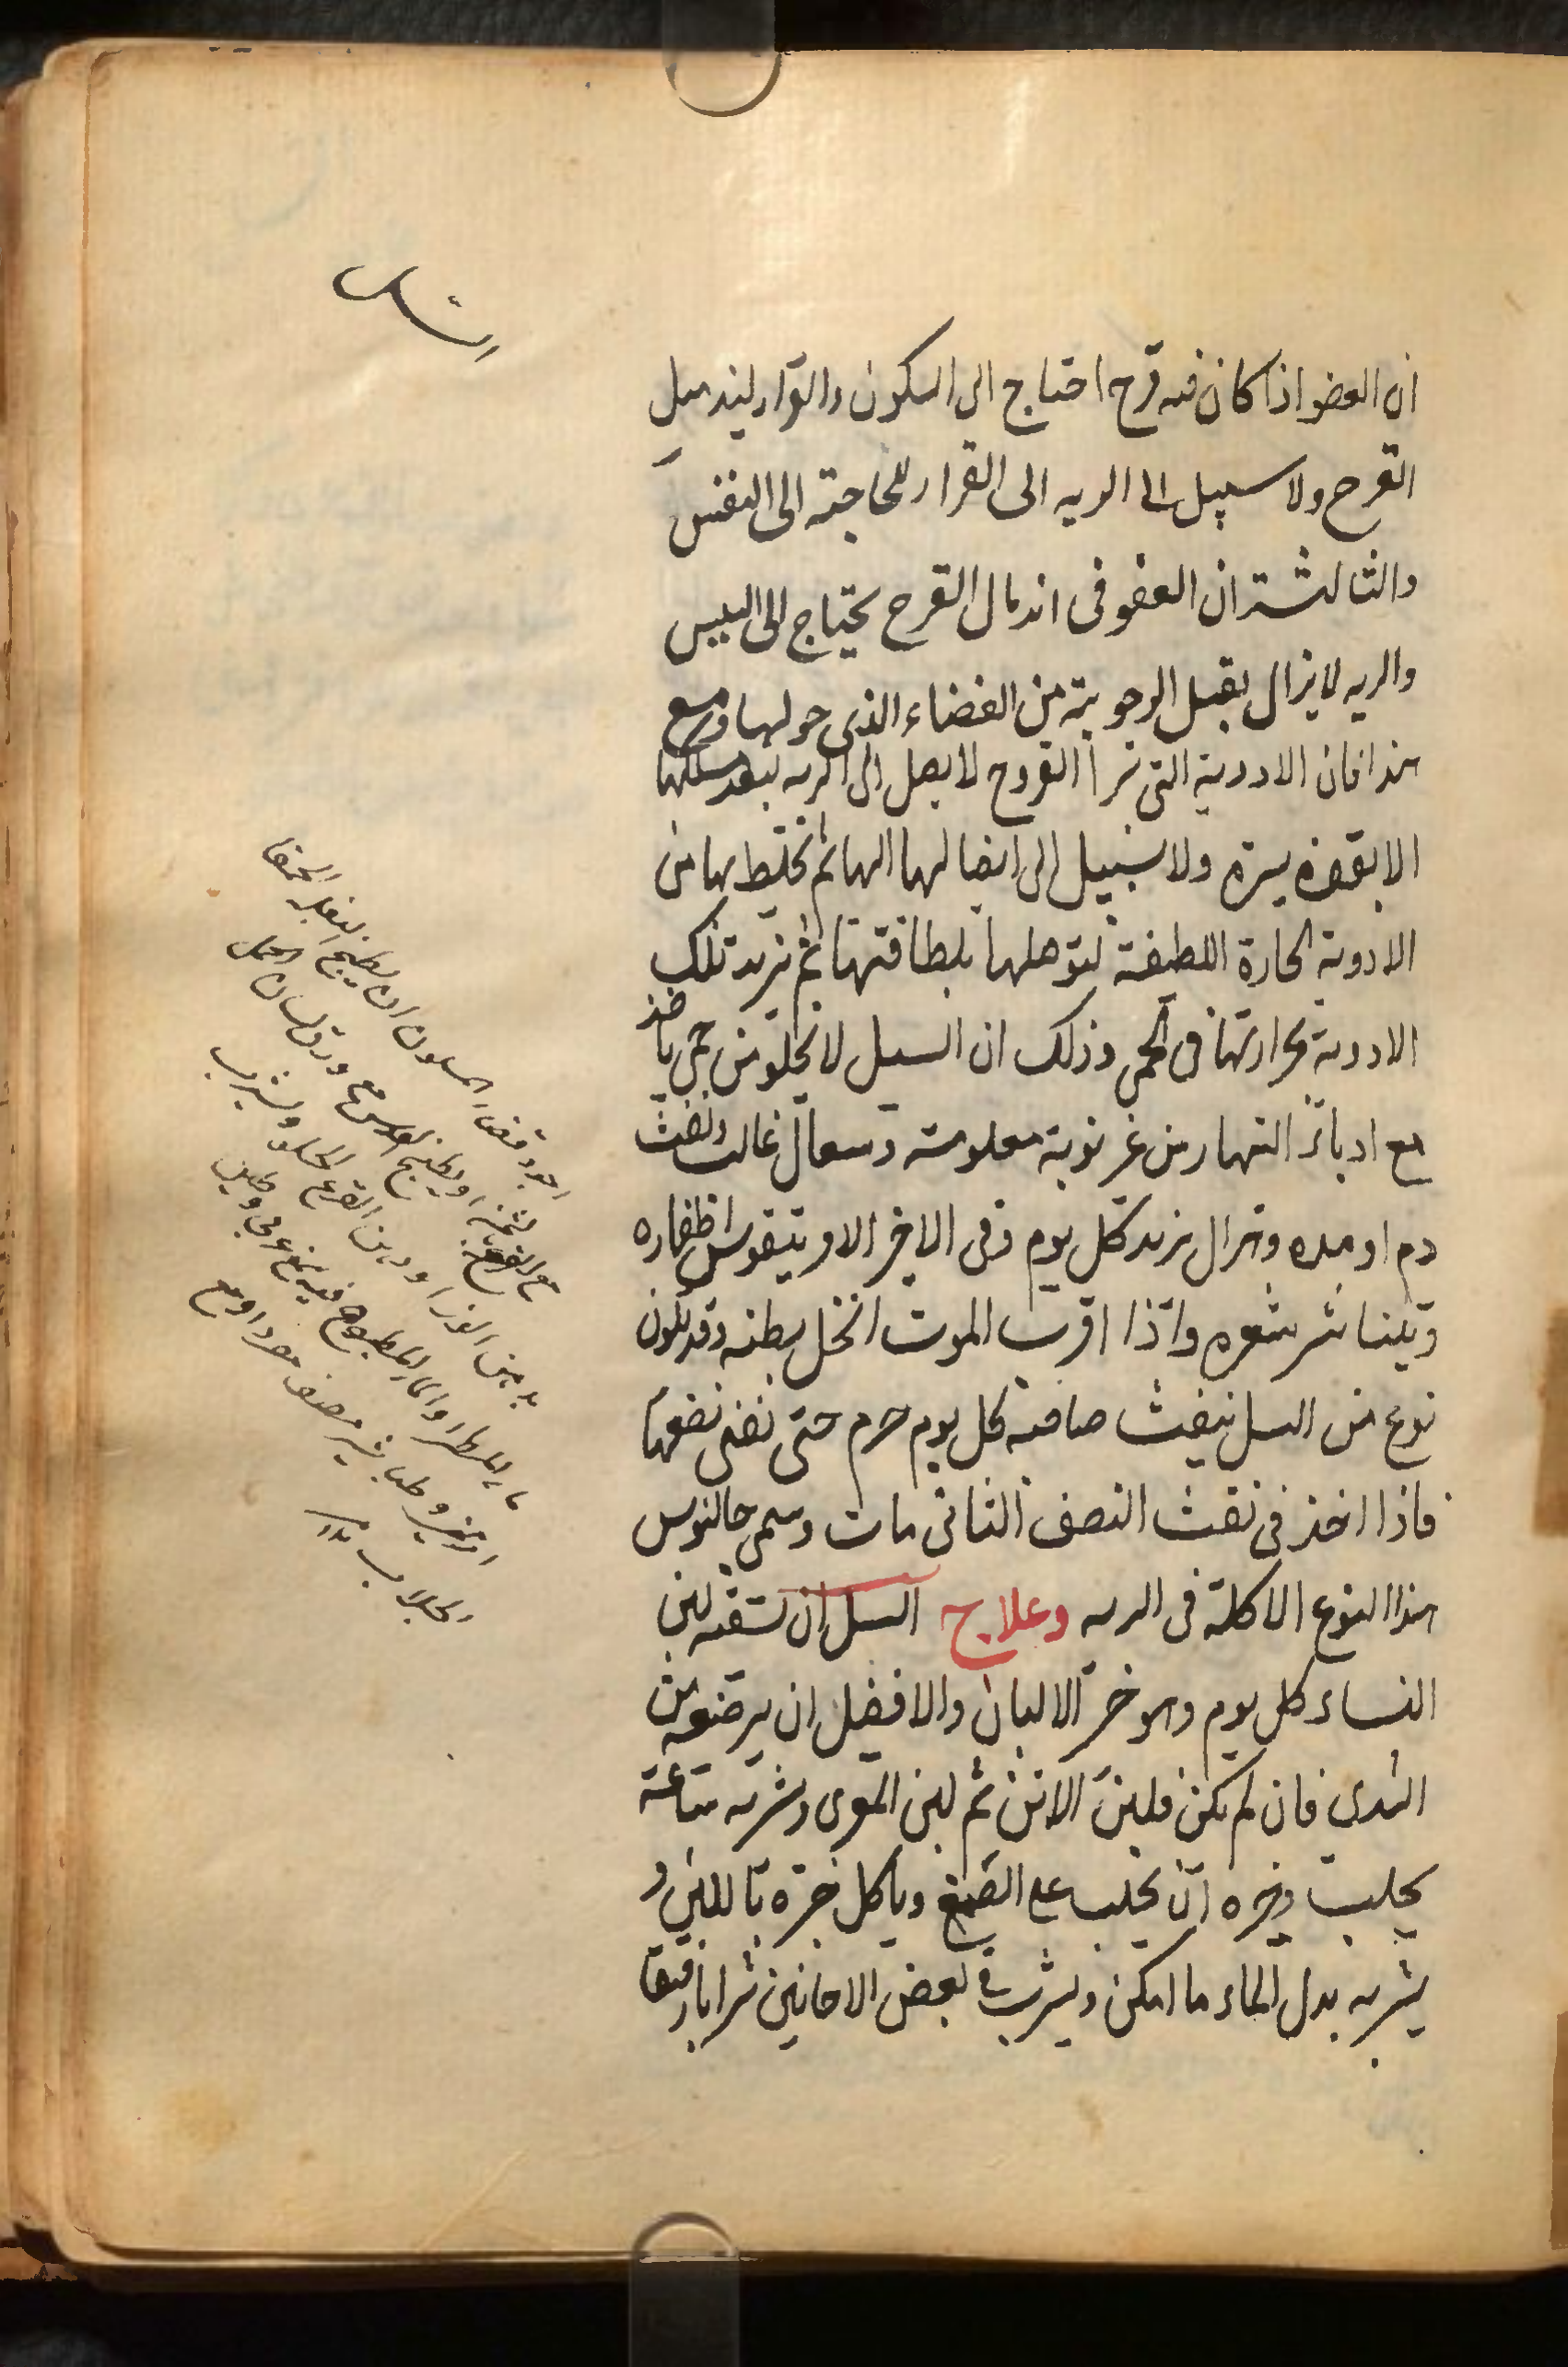 ان العضو اذا كان فيه قرح احتاج الى السكون والقرار ليندمل
القرح ولا سبيل الى الريه الى القرار للحاجته الى النفس
والثالثة ان العضو فى اندمال القرح يحتاج الى اليبس
والريه لا يزال يقبل الرطوبة من الفضاء الذى حولها ومع
هذا فان الادوية التى تبرأ القروح لا يصل الى الريه لبعد مسلكها
الا بقوة يسيرة ولا سبيل الى ايصالها اليها ثم تختلط بها من
الادوية الحارة اللطيفة لتوصلها بلطافتها ثم تزيد تلك
الادوية بحرارتها فى الحمى وذلك ان السل لا يخلو من حمى ياخذ
مع ادبار النهار من غير نوبة معلومة وسعال غالب ونفث
دم او مده وهزال يزيد كل يوم وفى الاخير الامر يتقوس اظفاره
ويتناثر شعره واذا اقرب الموت انحل بطنه وقد يكون
نوع من السل ينفث صاحبه كل يوم جرم حتى نفنى نصفها
فاذا اخذ فى نفث النصف الثانى مات وسمى جالنوس
هذا النوع الاكلة فى الريه وعلاج السل ان تسقيه لبن
النساء كل يوم وهو خير الالبان والافضل ان يرضعه من
الثدى فان لم يكن فلبن الاتن ثم لبن المعزى وشربه ساعة
يحلب وخيره ان يحلب على الصمغ وياكل خبزه باللبن و
يشربه بدل الماء ما امكن ويشرب فى بعض الاحايين شرابا رقيقا
اجود قضاء المسلون ان يطبخ البقلة الحمقا
مع القرع او يطبخ العدس مع ورق لسان الحمل
بدهن اللوز او دهن القرع الحلو ويشرب
ماء المطر او الماء المطبوخ فيه صمغ عربى وطين
ارمنى وطباشير
الجلاب